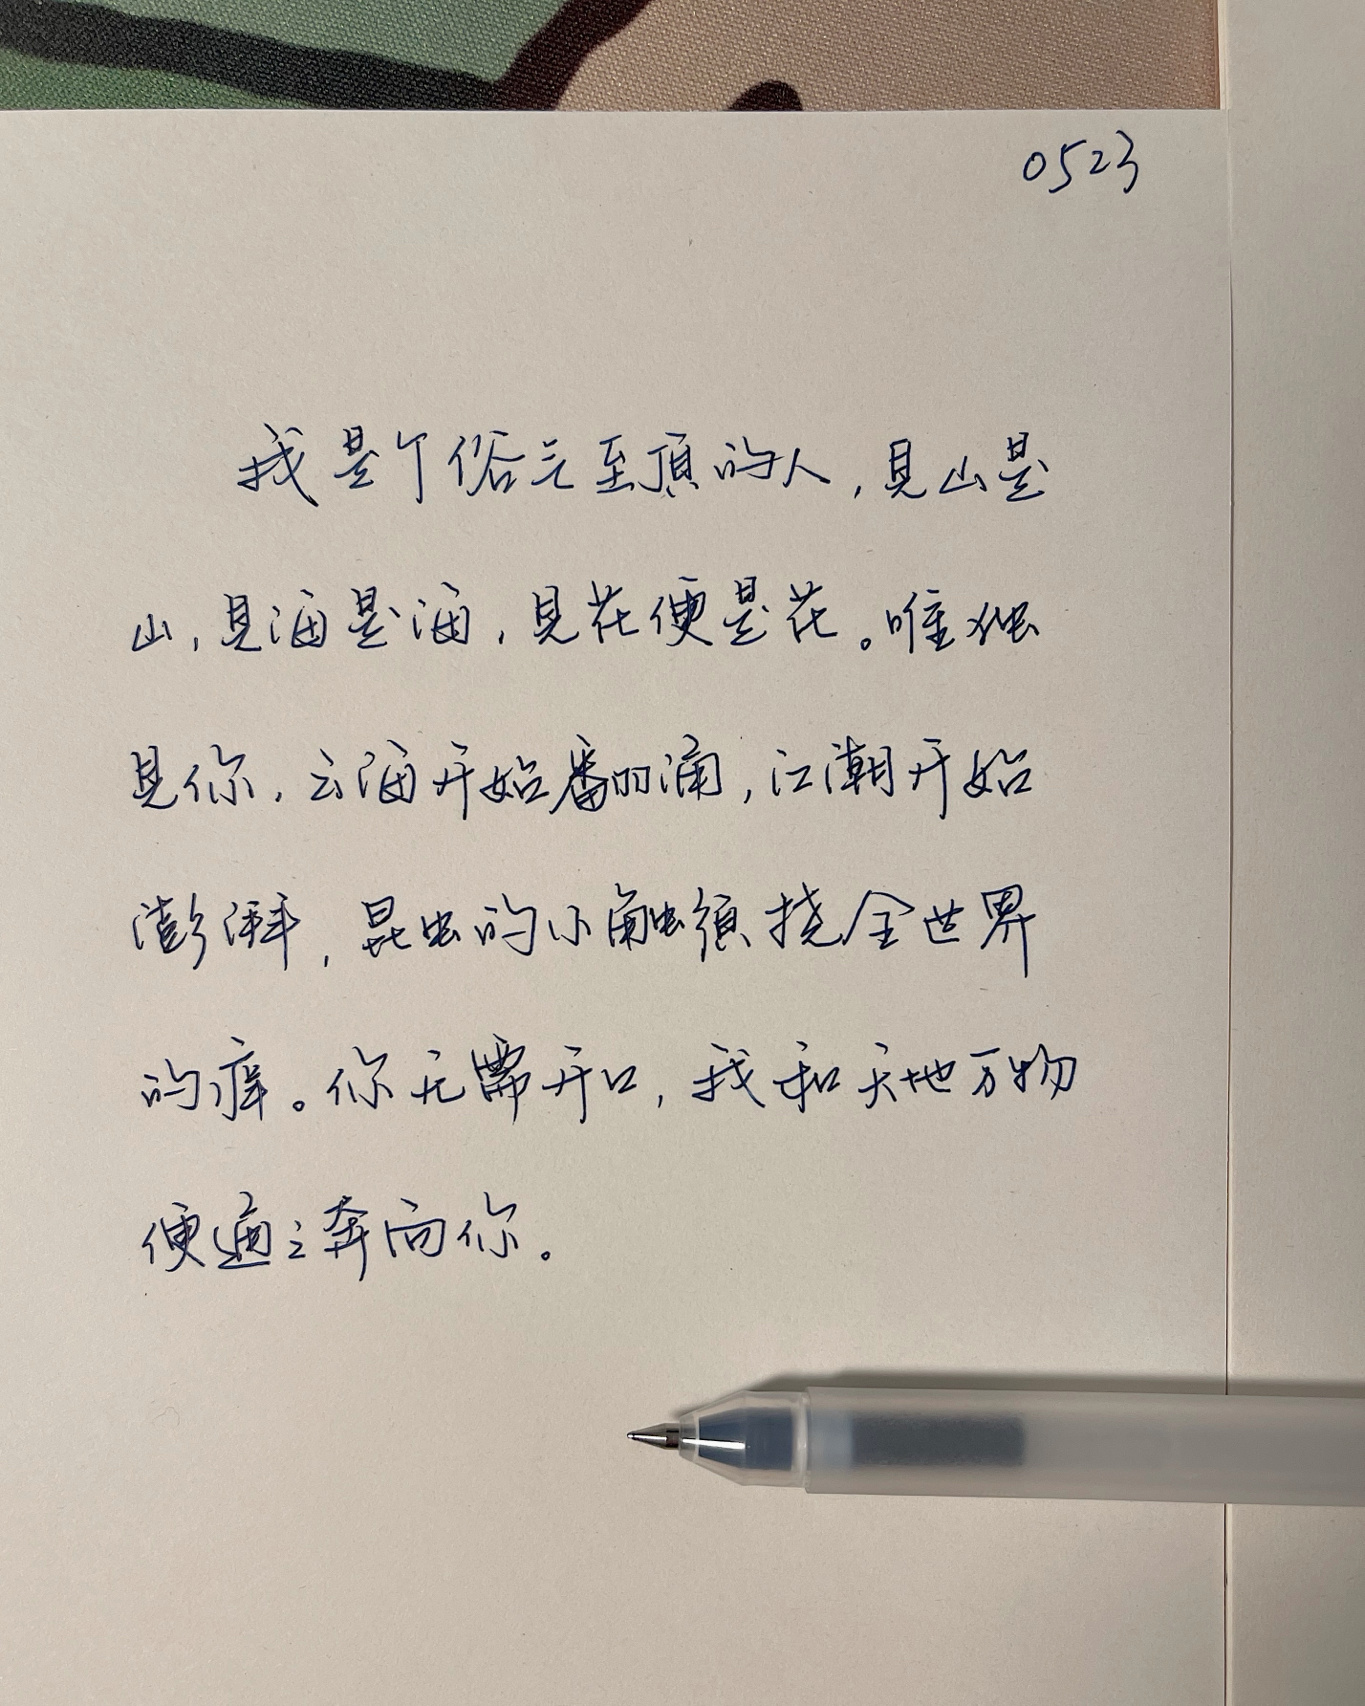 0523
我是个俗气至頂的人，見山是
山，見海是海，見花便是花。唯独
見你，云海开始翻涌，江潮开始
澎湃，昆虫的小触須挠全世界
的痒。你无需开口，我和天地万物
便通通奔向你。